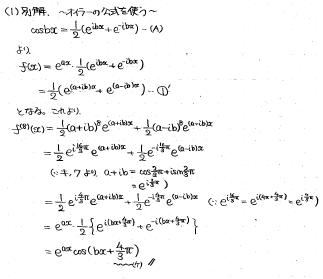 (1) 別解. 〜オイラーの公式を使う〜
cosbx = 1/2 (e^{ibx} + e^{-ibx}) –(A)
より
f(x) = e^{ax}・1/2 (e^{ibx} + e^{-ibx})
= 1/2 (e^{(a+ib)x} + e^{(a-ib)x}) … ①'
となる。これより、
f^{(8)}(x) = 1/2 (a+ib)^8 e^{(a+ib)x} + 1/2 (a-ib)^8 e^{(a-ib)x}
= 1/2 e^{i 16/3 π} e^{(a+ib)x} + 1/2 e^{-i 16/3 π} e^{(a-ib)x}
(∵ キ, ク より a+ib = cos 2/3 π + i sin 2/3 π
= e^{i 2/3 π})
= 1/2 e^{i 4/3 π} e^{(a+ib)x} + 1/2 e^{-i 4/3 π} e^{(a-ib)x} (∵ e^{i 16/3 π} = e^{i(4π + 4/3 π)} = e^{i 4/3 π})
= e^{ax}・1/2 { e^{i(bx + 4/3 π)} + e^{-i(bx + 4/3 π)} }
= e^{ax} cos (bx + 4/3 π)